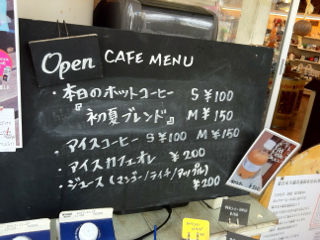 Open CAFE MENU
・本日のホットコーヒー S ¥100
『初夏ブレンド』 M ¥150
・アイスコーヒー S ¥100 M ¥150
・アイスカフェオレ ¥200
・ジュース(マンゴー/ライチ/アップル)
¥200